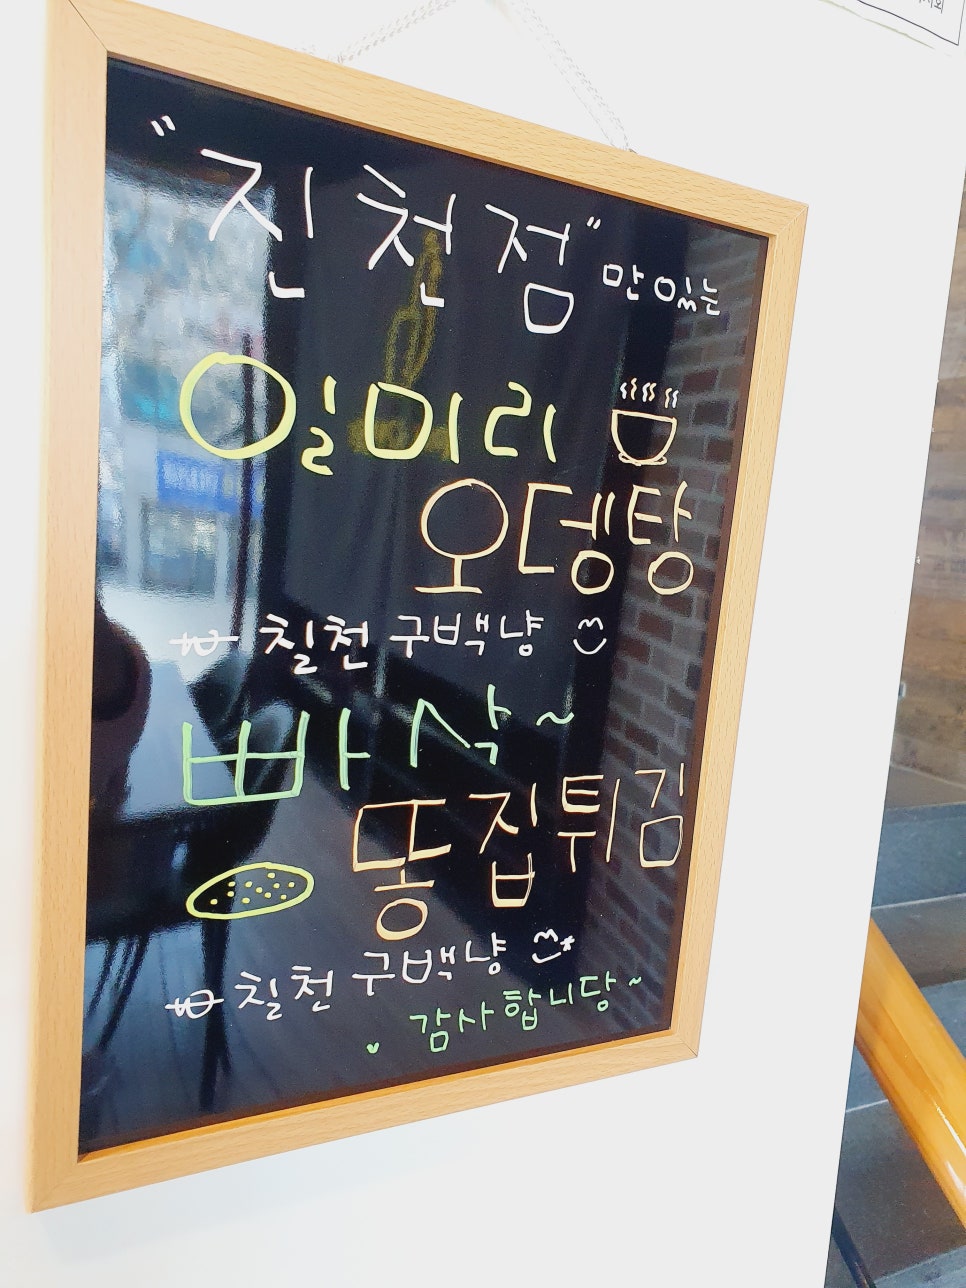 "진천점"만있는
일미리
오뎅탕
₩ 칠천 구백냥
빠삭~
똥집튀김
₩ 칠천 구백냥
감사합니당~